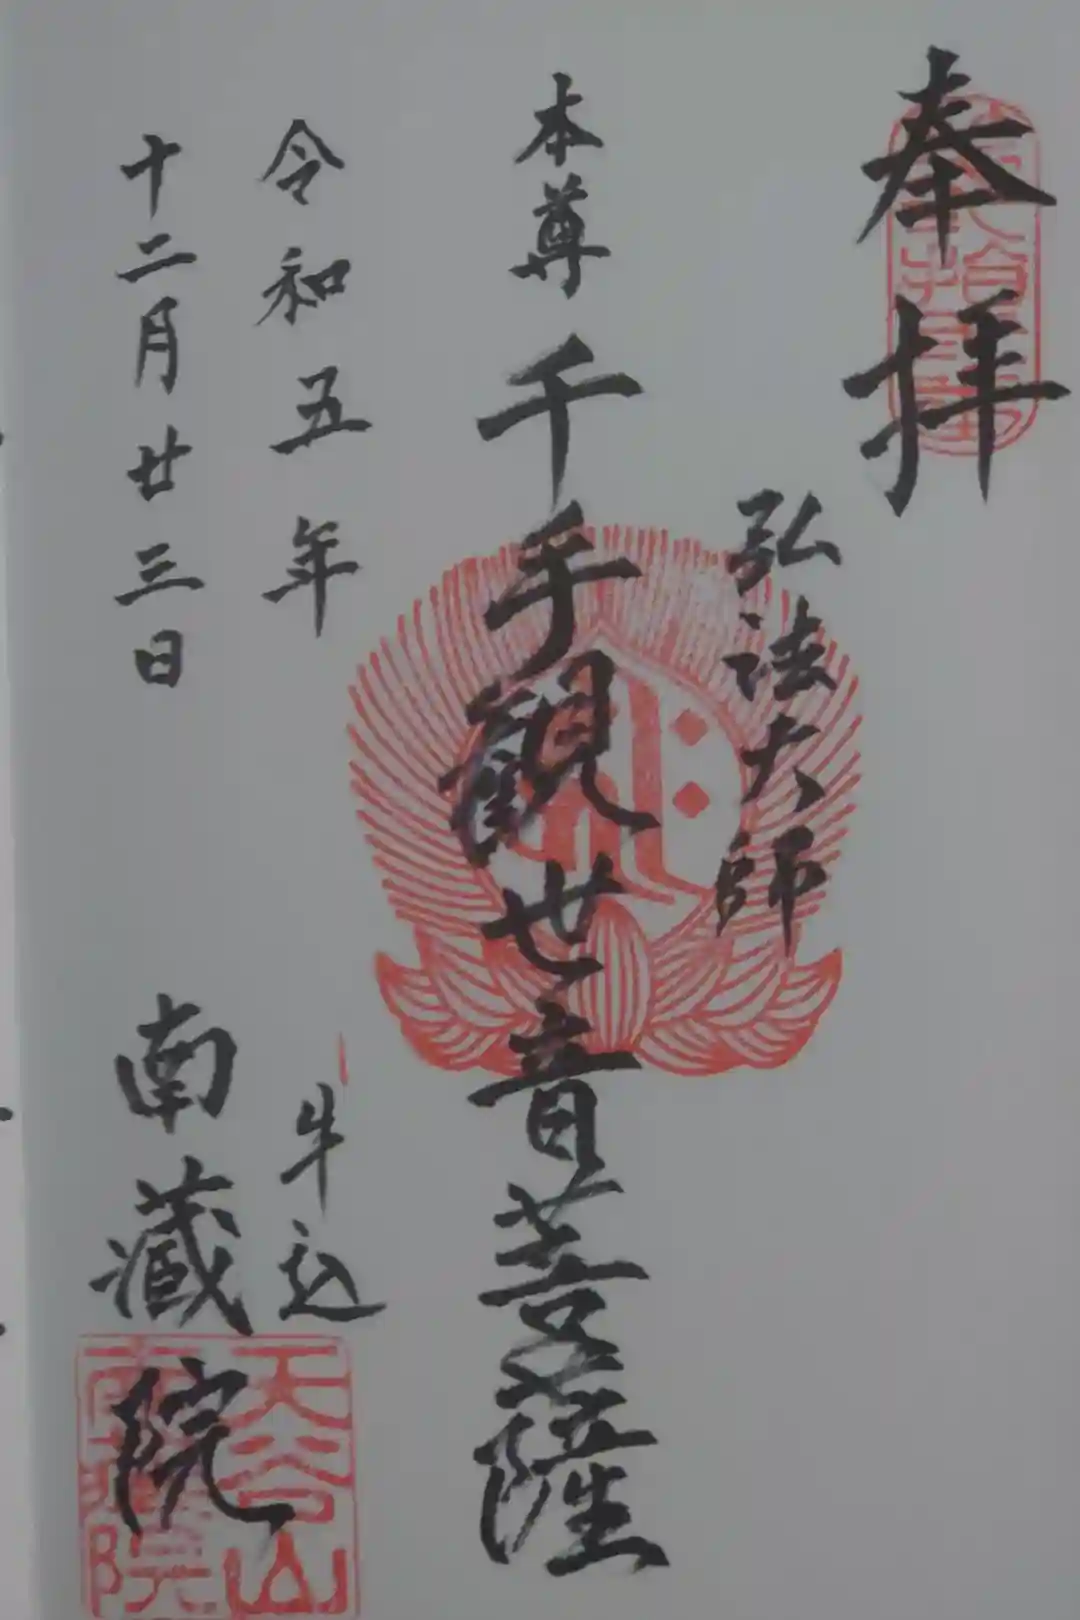 奉拝
弘法大師
本尊 千手観世音菩薩
令和五年
十二月廿三日
牛込
南蔵院
天谷山
南蔵院